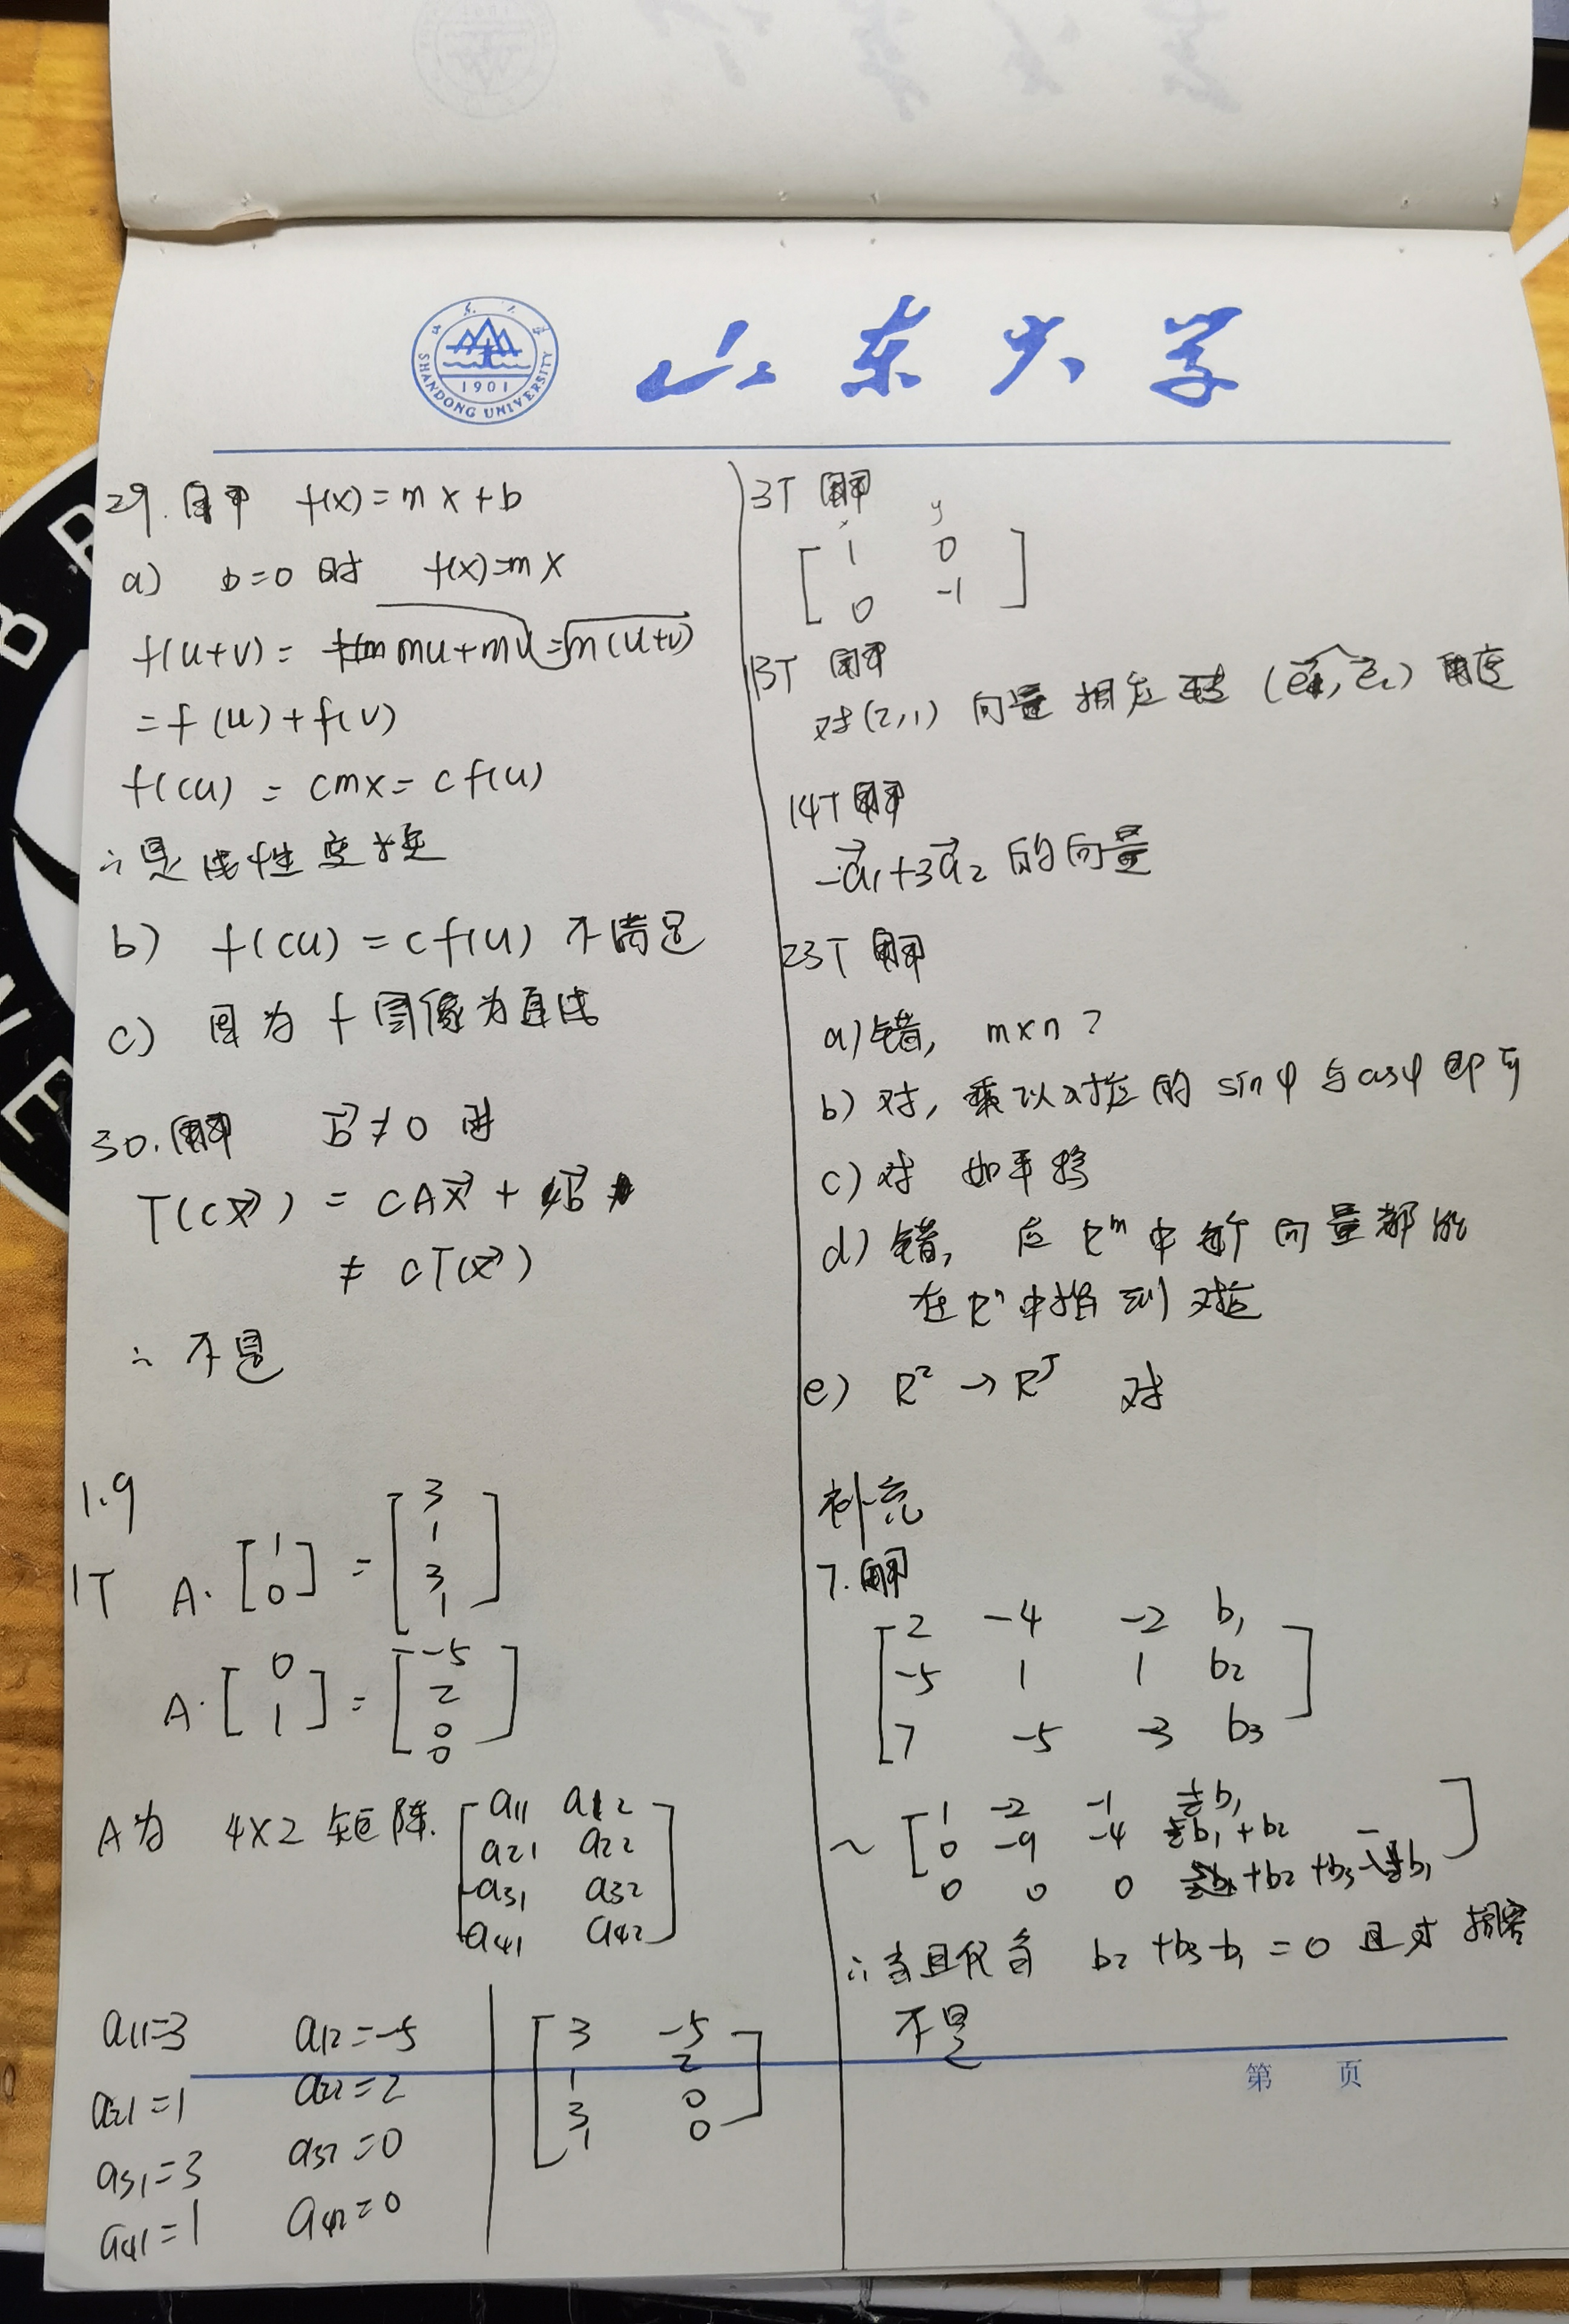 山东大学
SHANDONG UNIVERSITY
1901
29. 解 f(x)=mx+b
a) b=0 时 f(x)=mx
f(u+v)= mu+mv=m(u+v)
=f(u)+f(v)
f(cu) = cmx= cf(u)
∴是线性变换
b) f(cu)=cf(u) 不满足
c) 因为 f 图像为直线
30. 解 b⃗≠0 时
T(cx⃗) = cAx⃗ + b⃗
≠ cT(x⃗)
∴ 不是
1.9
1T A·[1 0] = [3 1 3 1]
A·[0 1] = [-5 2 0 0]
A为 4×2 矩阵.
[a11 a12
a21 a22
a31 a32
a41 a42]
a11=3 a12=-5
a21=1 a22=2
a31=3 a32=0
a41=1 a42=0
[3 -5
1 2
3 0
1 0]
3T 解
x y
[1 0
0 -1]
13T 解
对(2,1) 向量相应 (e⃗1, e⃗2) 角度
14T 解
-a⃗1+3a⃗2 的向量
23T 解
a) 错, m×n?
b) 对, 乘以对应的 sinφ 与 cosφ 即可
c) 对 如平移
d) 错, 应 R^m 中每个向量都能
在 R^n 中找到对应
e) R² → R³ 对
补充
7. 解
[2 -4 -2 b1
-5 1 1 b2
7 -5 -3 b3]
~ [1 -2 -1 ½b1
0 -9 -4 5/2b1+b2
0 0 0 +b2+b3- b1]
∴当且仅当 b2+b3-b1=0 且对 相容
不是
第 页